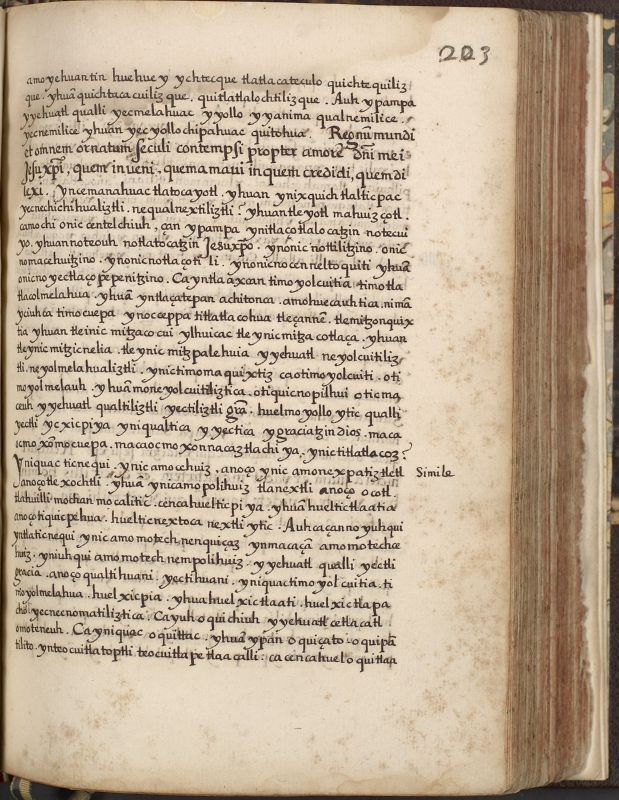 223
amo yehuantin huehue y ychtecque tlatlacateculo quichtequiliz
que. yhuā quichtacacuiliz que. quitlatlalochtiliz que. Auh ypampa
yyehuatl qualli yecmelahuac yyollo yyanima qualnemilice.
yecnemilice yhuan yecyollochipahuac quitohua. Regnū mundi
et omnem ornatum seculi contempsi propter amorē dn̄i mei
Jesuxp̄i, quem inueni, quem amaui in quem credidi, quem di
lexi. yncemanahuac tlatocayotl. yhuan ynixquich tlalticpac
yecnechichihualiztli. nequalnextiliztli? yhuan tleyotl mahuizçotl.
camochi onic centelchiuh, çan ypampa ynitlaçotlalocatzin notecui
yo. yhuan noteouh notlatocatzin Jesuxp̄o. ynonic nottilitzino. onic
nomacehuitzino. ynonic notlaçoti li. ynonicnocenneltoquiti yhuā
onicnoyectlaçopepenitzino. Ca yntla axcan timoyolcuitia timotla
tlacolmelahua. yhuā yntlaçatepan achitonca. amohuecauhtica. nimā
yciuhca timocuepa ynoceppa titlatlacohua tleçannē. tlemitzonquix
tia yhuan tleinic mitzacocui ylhuicac tleynic mitza cotlaça. yhuan
tleynic mitzicnelia. tleynic mitzpalehuia yyehuatl neyolcuitiliz
tli. neyolmelahualiztli. ynictimomaquixtiz caotimoyolcuiti. oti
moyolmelauh. yhuā moneyolcuitiliztica. otiquicnopilhui oticma
ceuh yyehuatl qualtiliztli yectiliztli grā. huelmoyollo ytic qualli
yectli yc xicpiya yniqualtica yyectica ygraciatzin dios. maca
ocmo xōmocuepa. macaocmo xonnacaztlachiya. ynic titlatlacoz?
yniquac ticnequi. ynic amo cehuiz. anoço ynic amo nexpatiz tletl
Simile
anoço tlexochtli. yhuā ynicamo polihuiz tlanextli anoço ocotl.
tlahuilli mochan mocalitic. cencahuelticpiya. yhuā hueltictlaatia
anoço tiquicpehua. huelticnextoca nextli ytic. Auh caçanno yuhqui
yntlaticnequi ynic amo motechnenquiçaz ynmacaçā amo motechce
huiz. yniuhqui amo motechnempolihuiz. yyehuatl qualli yectli
gracia. anoço qualtihuani. yectihuani. yniquac timoyolcuitia. ti
moyolmelahua. huel xicpia. yhua huel xictlaati. huel xictlapa
cho. yecnecnomatiliztica. Ca yuh oquichiuh yyehuatl ce tlacatl
omoteneuh. Ca yniquac oquittac. yhuā ypan oquiçato. oquipā
tilito. ynteocuitlatoptli teocuitlapetlaacalli: ca cencahuel oquitlap